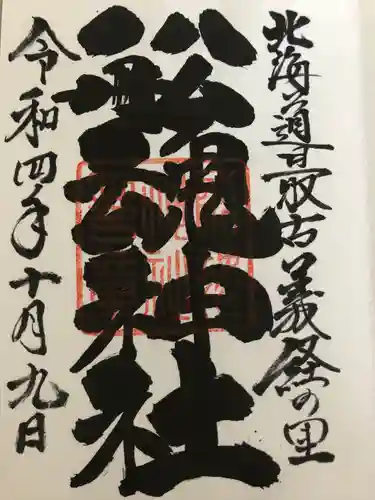 北海道最古義経の里
船魂神社
令和四年十月九日